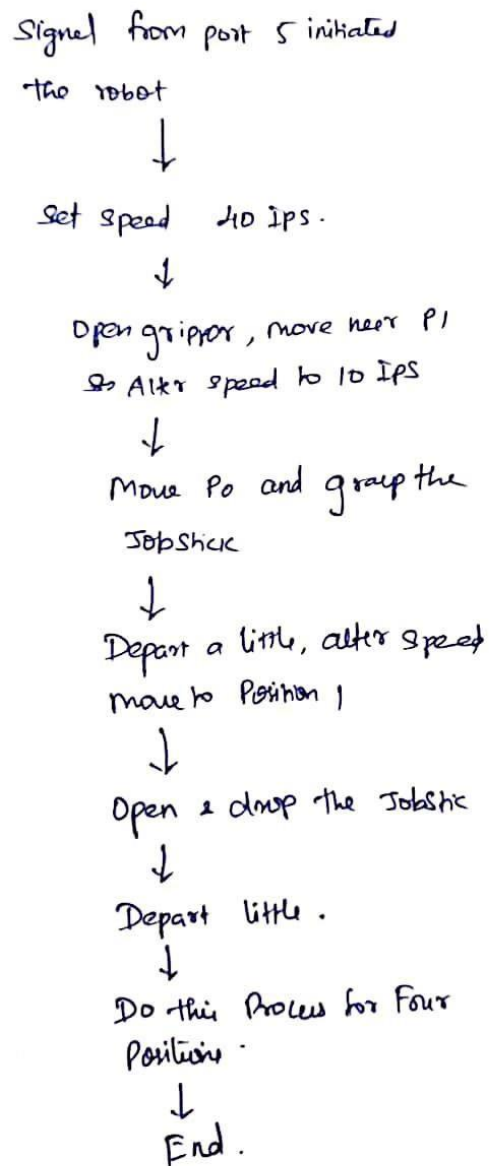 Signel from port 5 initiated
the robot
↓
Set speed 40 IPS.
↓
Open gripper, move neer P1
Alter speed to 10 IPS
↓
Move Po and grasp the
JobStick
↓
Depart a little, alter speed
move to Position 1
↓
Open & drop the JobStic
↓
Depart little.
↓
Do this Process for Four
Positions.
↓
End.